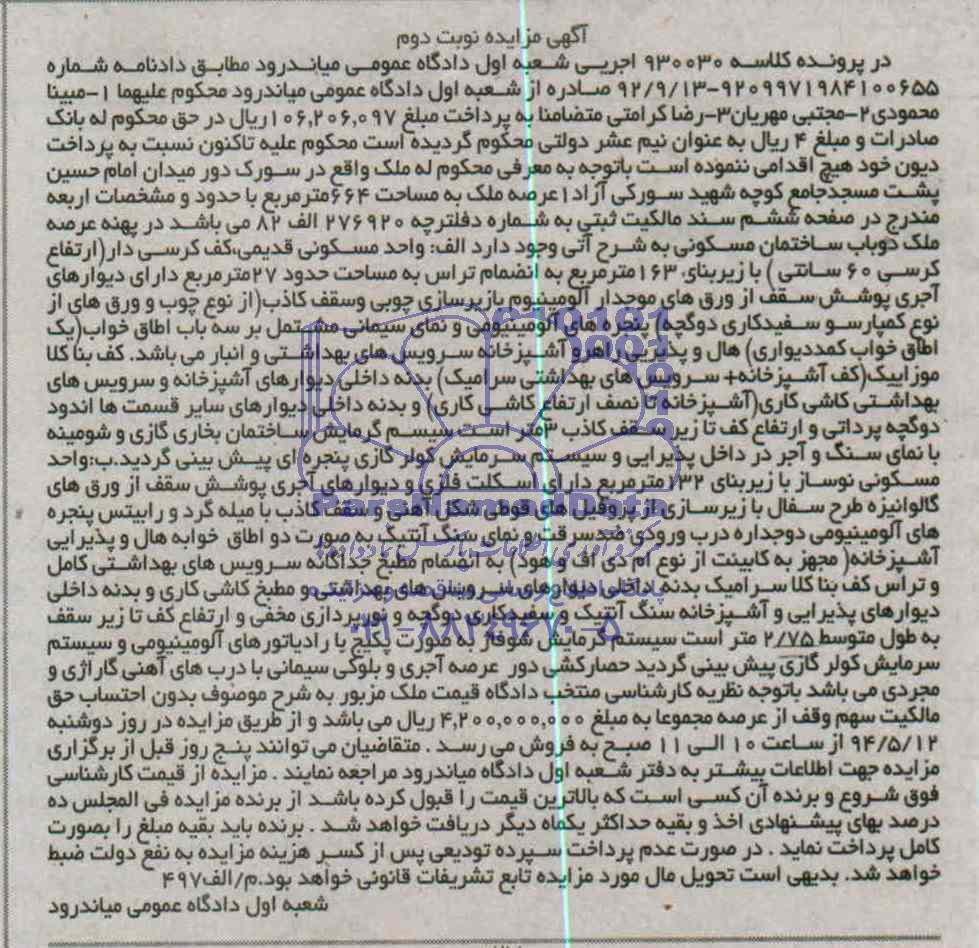 آگهی مزایده نوبت دوم
در پرونده کلاسه ۹۳۰۰۳۰ اجریی شعبه اول دادگاه عمومی میاندرود مطابق دادنامه شماره
۹۲۰۹۹۷۱۹۸۴۱۰۰۶۵۵-۹۲/۹/۱۳ صادره از شعبه اول دادگاه عمومی میاندرود محکوم علیهما ۱-مبینا
محمودی۲-مجتبی مهریان۳-رضا کرامتی متضامنا به پرداخت مبلغ ۱۰۶,۲۰۶,۰۹۷ریال در حق محکوم له بانک
صادرات و مبلغ ۴ ریال به عنوان نیم عشر دولتی محکوم گردیده است محکوم علیه تاکنون نسبت به پرداخت
دیون خود هیچ اقدامی ننموده است باتوجه به معرفی محکوم له ملک واقع در سورک دور میدان امام حسین
پشت مسجدجامع کوچه شهید سورکی آزاد۱عرصه ملک به مساحت ۶۶۴مترمربع با حدود و مشخصات اربعه
مندرج در صفحه ششم سند مالکیت ثبتی به شماره دفلترچه ۲۷۶۹۲۰ الف ۸۲ می باشد در پهنه عرصه
ملک دوباب ساختمان مسکونی به شرح آتی وجود دارد الف: واحد مسکونی قدیمی،کف کرسی دار(ارتفاع
کرسی ۶۰ سانتی ) با زیربنای ۱۶۳مترمربع به انضمام تراس به مساحت حدود ۲۷مترمربع دارای دیوارهای
آجری پوشش سقف از ورق های موجدار آلومینیوم بازیرسازی چوبی وسقف کاذب(از نوع چوب و ورق های از
نوع کمپارسو سفیدکاری دوگچه) پنجره های آلومینیومی و نمای سیمانی مشتمل بر سه باب اطاق خواب(یک
اطاق خواب کمددیواری) هال و پذیریی راهرو آشپزخانه سرویس های بهداشتی و انبار می باشد. کف بنا کلا
موزاییک(کف آشپزخانه+ سرویس های بهداشتی سرامیک) بدنه داخلی دیوارهای آشپزخانه و سرویس های
بهداشتی کاشی کاری(آشپزخانه تا نصف ارتفاع کاشی کاری) و بدنه داخلی دیوارهای سایر قسمت ها اندود
دوگچه پرداتی و ارتفاع کف تا زیر سقف کاذب ۳متر است سیسم گرمایش ساختمان بخاری گازی و شومینه
با نمای سنگ و آجر در داخل پذیرایی و سیستم سرمایش کولر گازی پنجره ای پیش بینی گردید.ب:واحد
مسکونی نوساز با زیربنای ۱۳۲مترمربع دارای اسکلت فلزی و دیوارهای آجری پوشش سقف از ورق های
گالوانیزه طرح سفال با زیرسازی از پروفیل های قوطی شکل آهنی و سقف کاذب با میله گرد و رابیتس پنجره
های آلومینیومی دوجداره درب ورودی ضدسرقت و نمای سنگ آنتیک به صورت دو اطاق خوابه هال و پذیرایی
آشپزخانه( مجهر به کابینت از نوع ام دی اف و هود) به انضمام مطبخ جداگانه سرویس های بهداشتی کامل
و تراس کف بنا کلا سرامیک بدنه داخلی دیوارهای سرویس های بهداشتی و مطبخ کاشی کاری و بدنه داخلی
دیوارهای پذیرایی و آشپزخانه سنگ آنتیک و سفیدکاری دوگچه و نورپردازی مخفی و ارتفاع کف تا زیر سقف
به طول متوسط ۲/۷۵ متر است سیستم گرمایش شوفاژ به صورت پکیج با رادیاتورهای آلومینیومی و سیستم
سرمایش کولر گازی پیش بینی گردید حصارکشی دور عرصه آجری و بلوکی سیمانی با درب های آهنی گاراژی و
مجردی می باشد باتوجه نظریه کارشناسی منتخب دادگاه قیمت ملک مزبور به شرح موصوف بدون احتساب حق
مالکیت سهم وقف از عرصه مجموعا به مبلغ ۴,۲۰۰,۰۰۰,۰۰۰ ریال می باشد و از طریق مزایده در روز دوشنبه
۹۴/۵/۱۲ از ساعت ۱۰ الی ۱۱ صبح به فروش می رسد . متقاضیان می توانند پنج روز قبل از برگزاری
مزایده جهت اطلاعات بیشتر به دفتر شعبه اول دادگاه میاندرود مراجعه نمایند . مزایده از قیمت کارشناسی
فوق شروع و برنده آن کسی است که بالاترین قیمت را قبول کرده باشد از برنده مزایده فی المجلس ده
درصد بهای پیشنهادی اخذ و بقیه حداکثر یکماه دیگر دریافت خواهد شد . برنده باید بقیه مبلغ را بصورت
کامل پرداخت نماید . در صورت عدم پرداخت سپرده تودیعی پس از کسر هزینه مزایده به نفع دولت ضبط
خواهد شد. بدیهی است تحویل مال مورد مزایده تابع تشریفات قانونی خواهد بود.م/الف۴۹۷
شعبه اول دادگاه عمومی میاندرود
ParsNamadData
۰۲۱-۸۸۳۴۹۶۷۰-۵